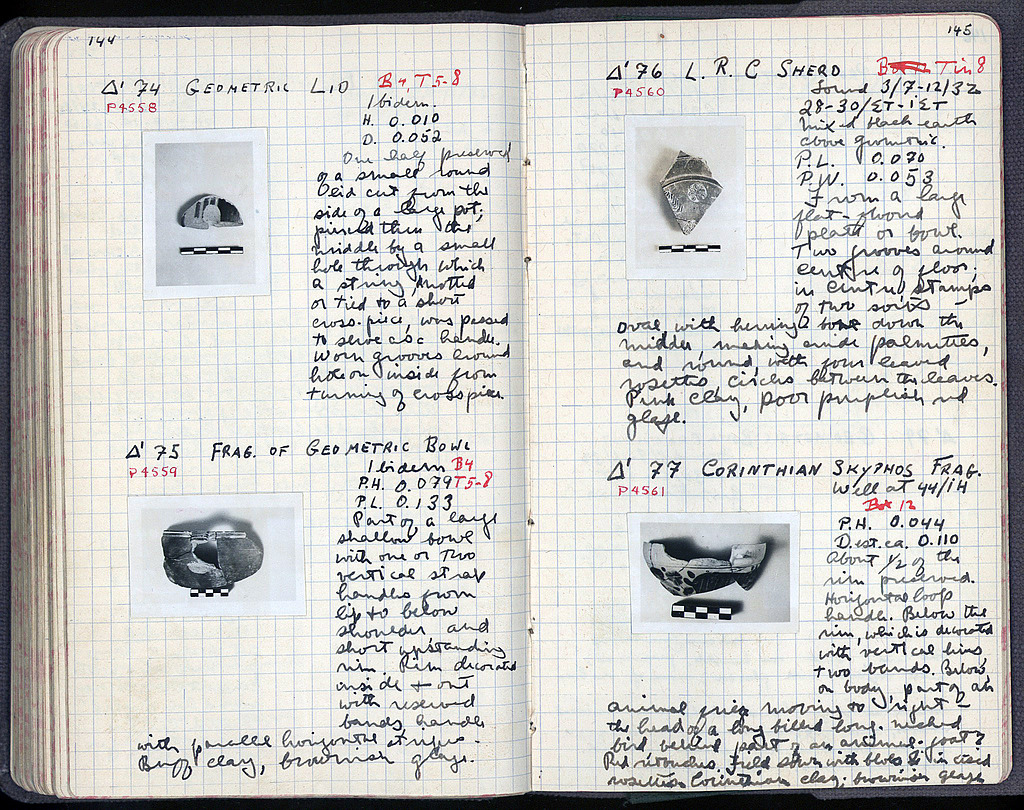 144
Δ' 74 GEOMETRIC LID B4, T5-8
P4558
Ibidem.
H. 0.010
D. 0.052
One half preserved
of a small round
lid cut from the
side of a large pot;
pierced thru the
middle by a small
hole through which
a string, knotted
or tied to a short
cross-piece, was passed
to serve as a handle.
Worn grooves around
hole on inside from
turning of crosspiece.
Δ' 75 FRAG. OF GEOMETRIC BOWL
P4559
Ibidem B4
P.H. 0.079 T5-8
P.L. 0.133
Part of a large
shallow bowl
with one or two
vertical strap
handles from
lip to below
shoulder, and
short upstanding
rim. Rim decorated
inside & out
with reserved
bands, handle
with parallel horizontal stripes.
Buff clay, brownish glaze.
145
Δ' 76 L. R. C SHERD Tin 8
P4560
Found 3/7-12/32
28-30/ΣΤ-ΙΣΤ
mixed black earth
above geometric.
P.L. 0.070
P.W. 0.053
From a large
flat-floored
plate or bowl.
Two grooves around
centre of floor;
in centre, stamps
of two sorts –
oval, with herring bone down the
middle, making crude palmettes,
and round, with four leaved
rosettes, circles between the leaves.
Pink clay, poor purplish red
glaze.
Δ' 77 CORINTHIAN SKYPHOS FRAG.
P4561
Well at 44/ΙΗ
Box 12
P.H. 0.044
D. est. ca. 0.110
About 1/2 of the
rim preserved.
Horizontal loop
handle. Below the
rim, which is decorated
with vertical lines
two bands. Below,
on body, part of an
animal frieze moving to right –
the head of a long billed long-necked
bird behind part of an animal-goat?
Red retouches. Field strewn with blobs & incised
rosettes. Corinthian clay; brownish glaze